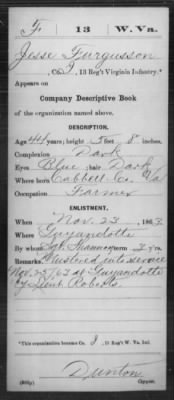 F | 13 | W. Va.
Jesse Furgusson
, Co. , 13 Reg't Virginia Infantry.*
Appears on
Company Descriptive Book
of the organization named above.
DESCRIPTION.
Age 44 years; height 5 feet 8 inches.
Complexion Dark
Eyes Blue ; hair Dark
Where born Cabbell Co. Va
Occupation Farmer
ENLISTMENT.
When Nov. 23 , 1863.
Where Guyandotte
By whom term 3 y'rs.
Remarks: Mustered into service
Nov. 23/63 at Guyandotte
by Lieut Roberts.
*This organization became Co. , 13 Reg't W. Va. Inf.
Dunton
Copyist.